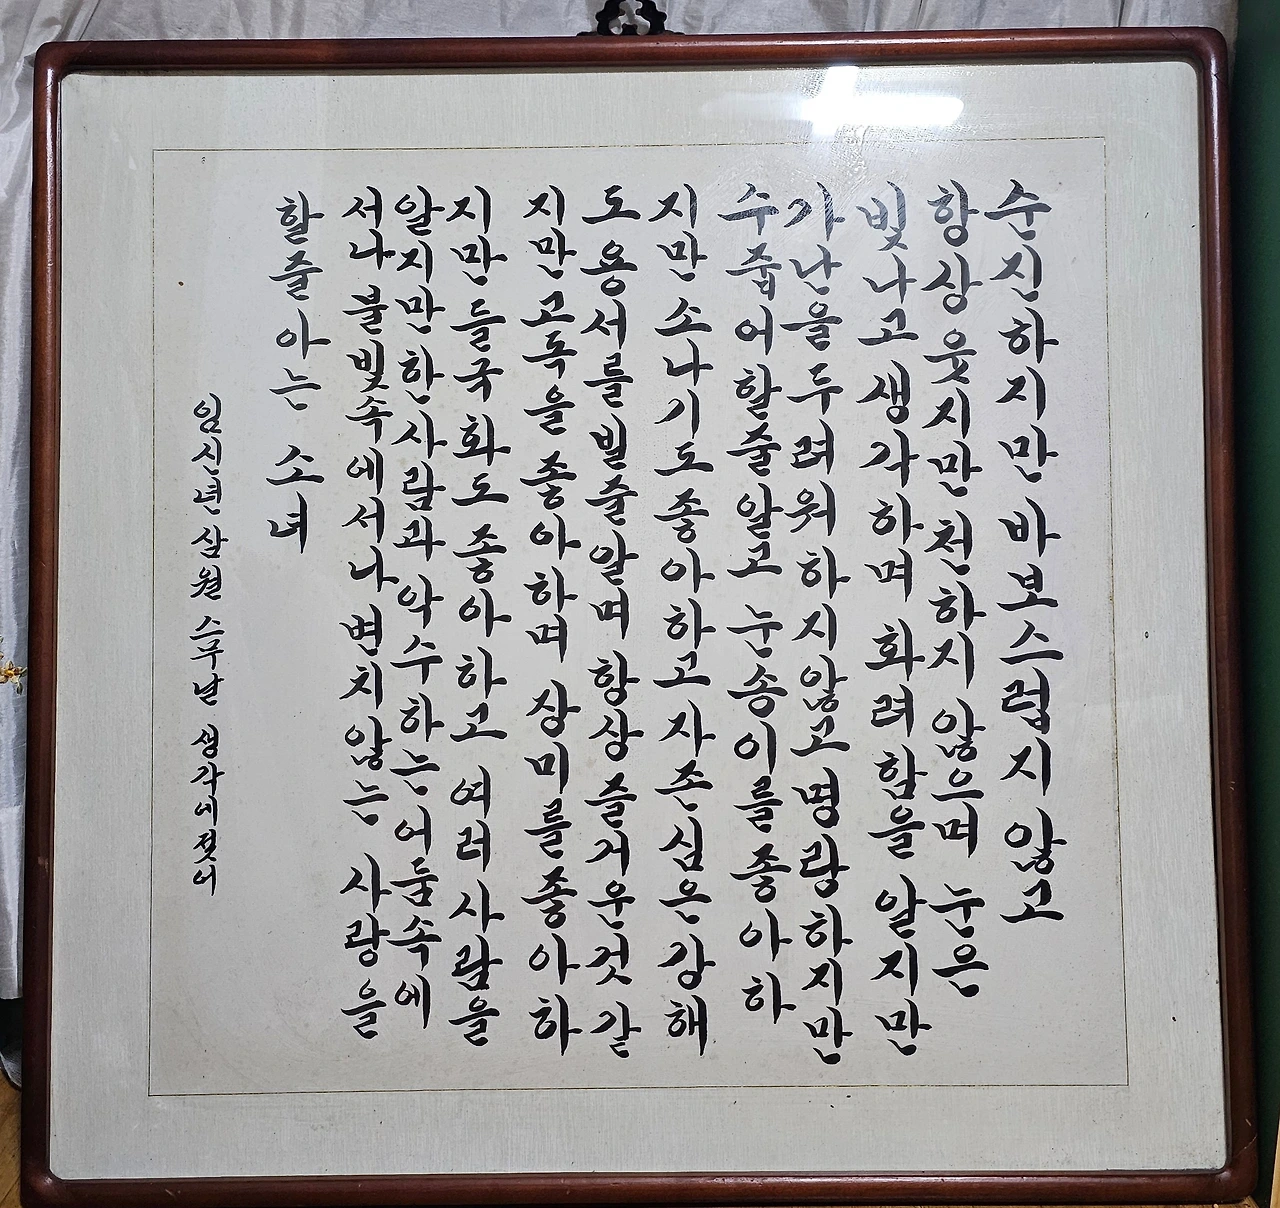 순진하지만 바보스럽지 않고
항상 웃지만 천하지 않으며 눈은
빛나고 생각하며 화려함을 알지만
가난을 두려워 하지 않고 명랑하지만
수줍어 할줄 알고 눈송이를 좋아하
지만 소나기도 좋아하고 자존심은 강해
도 용서를 빌줄 알며 항상 즐거운것 같
지만 고독을 좋아하며 장미를 좋아하
지만 들국화도 좋아하고 여러 사람을
알지만 한사람과 악수하는 어둠속에
서나 불빛속에서나 변치않는 사랑을
할줄 아는 소녀
임신년 삼월 스무날 생각에젖어